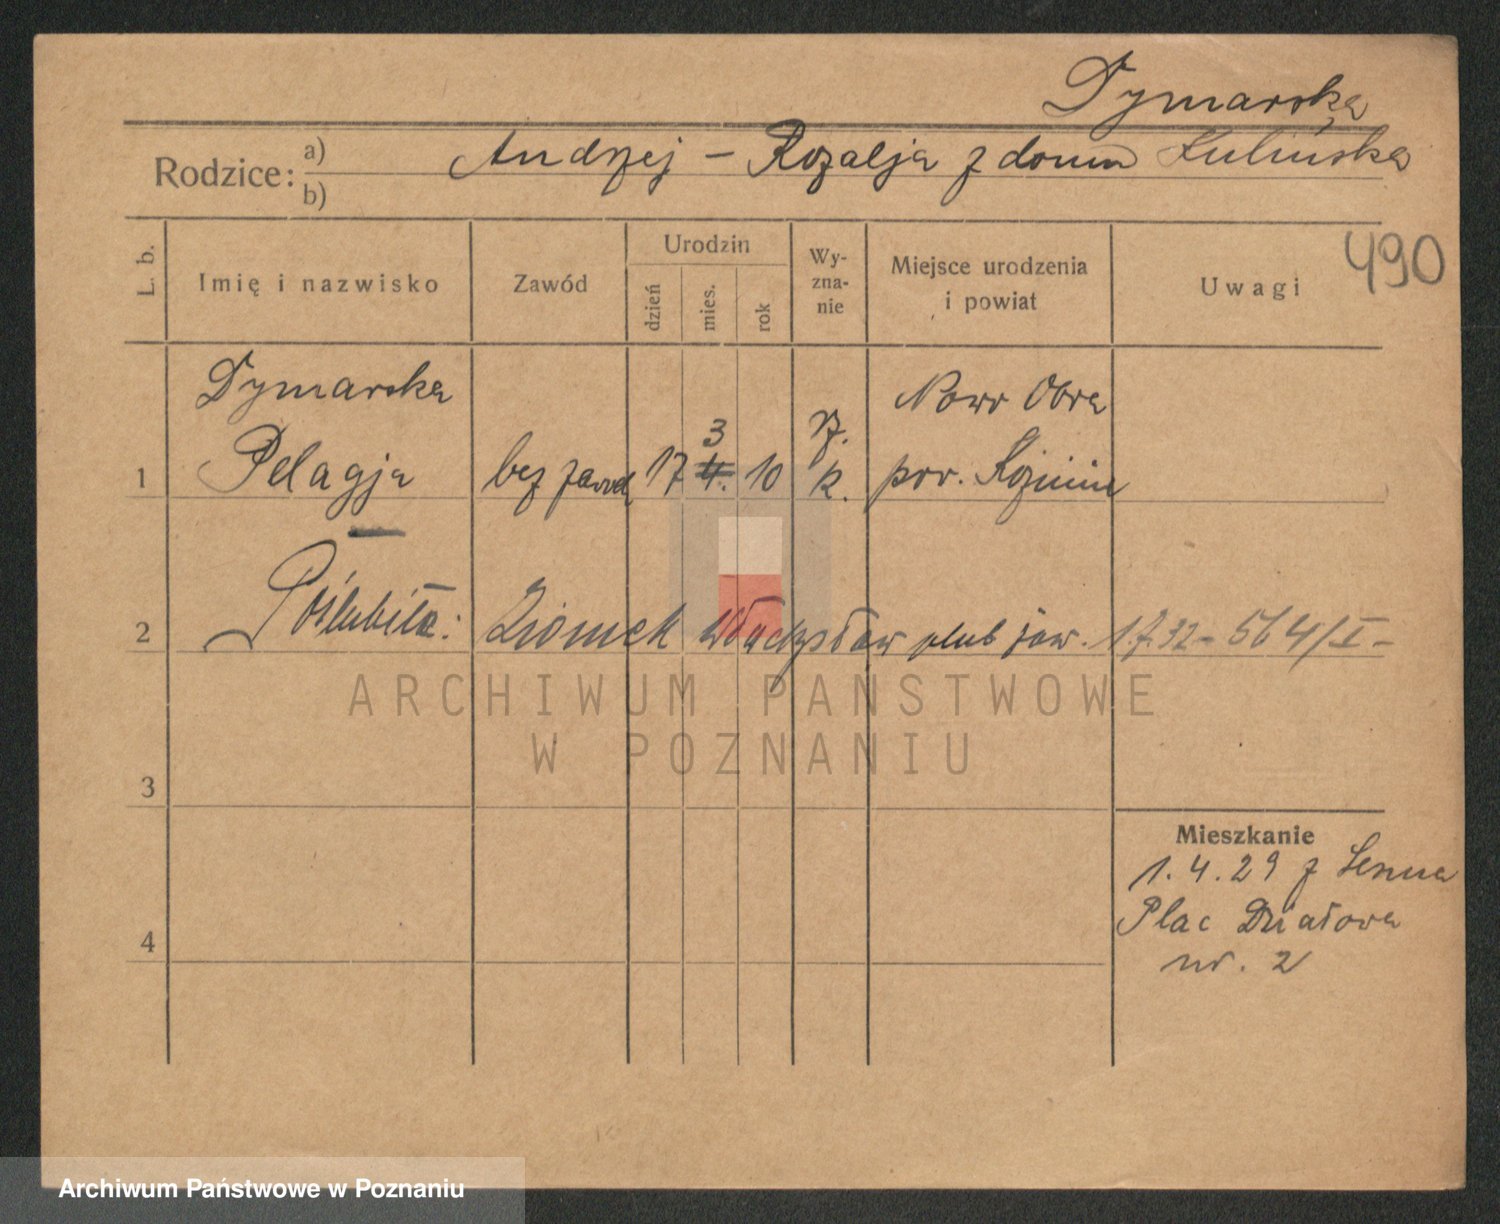 Dymarska
Rodzice: a) b) Andrzej – Rozalja z domu Kulińska
490
L. b. Imię i nazwisko Zawód Urodzin dzień mies. rok Wyzna-nie Miejsce urodzenia i powiat Uwagi
Dymarska Nowo Obra
3 rz.
1 Pelagja bez zawod 17 4. 10 k. pow. Koźmin
2 Poślubiła: Ziomek Władysław ślub jaw. 1.7.32 – 564/I –
ARCHIWUM PAŃSTWOWE
W POZNANIU
3
Mieszkanie
1.4.29 z Leszna
Plac Działowa
4
nr. 2
Archiwum Państwowe w Poznaniu